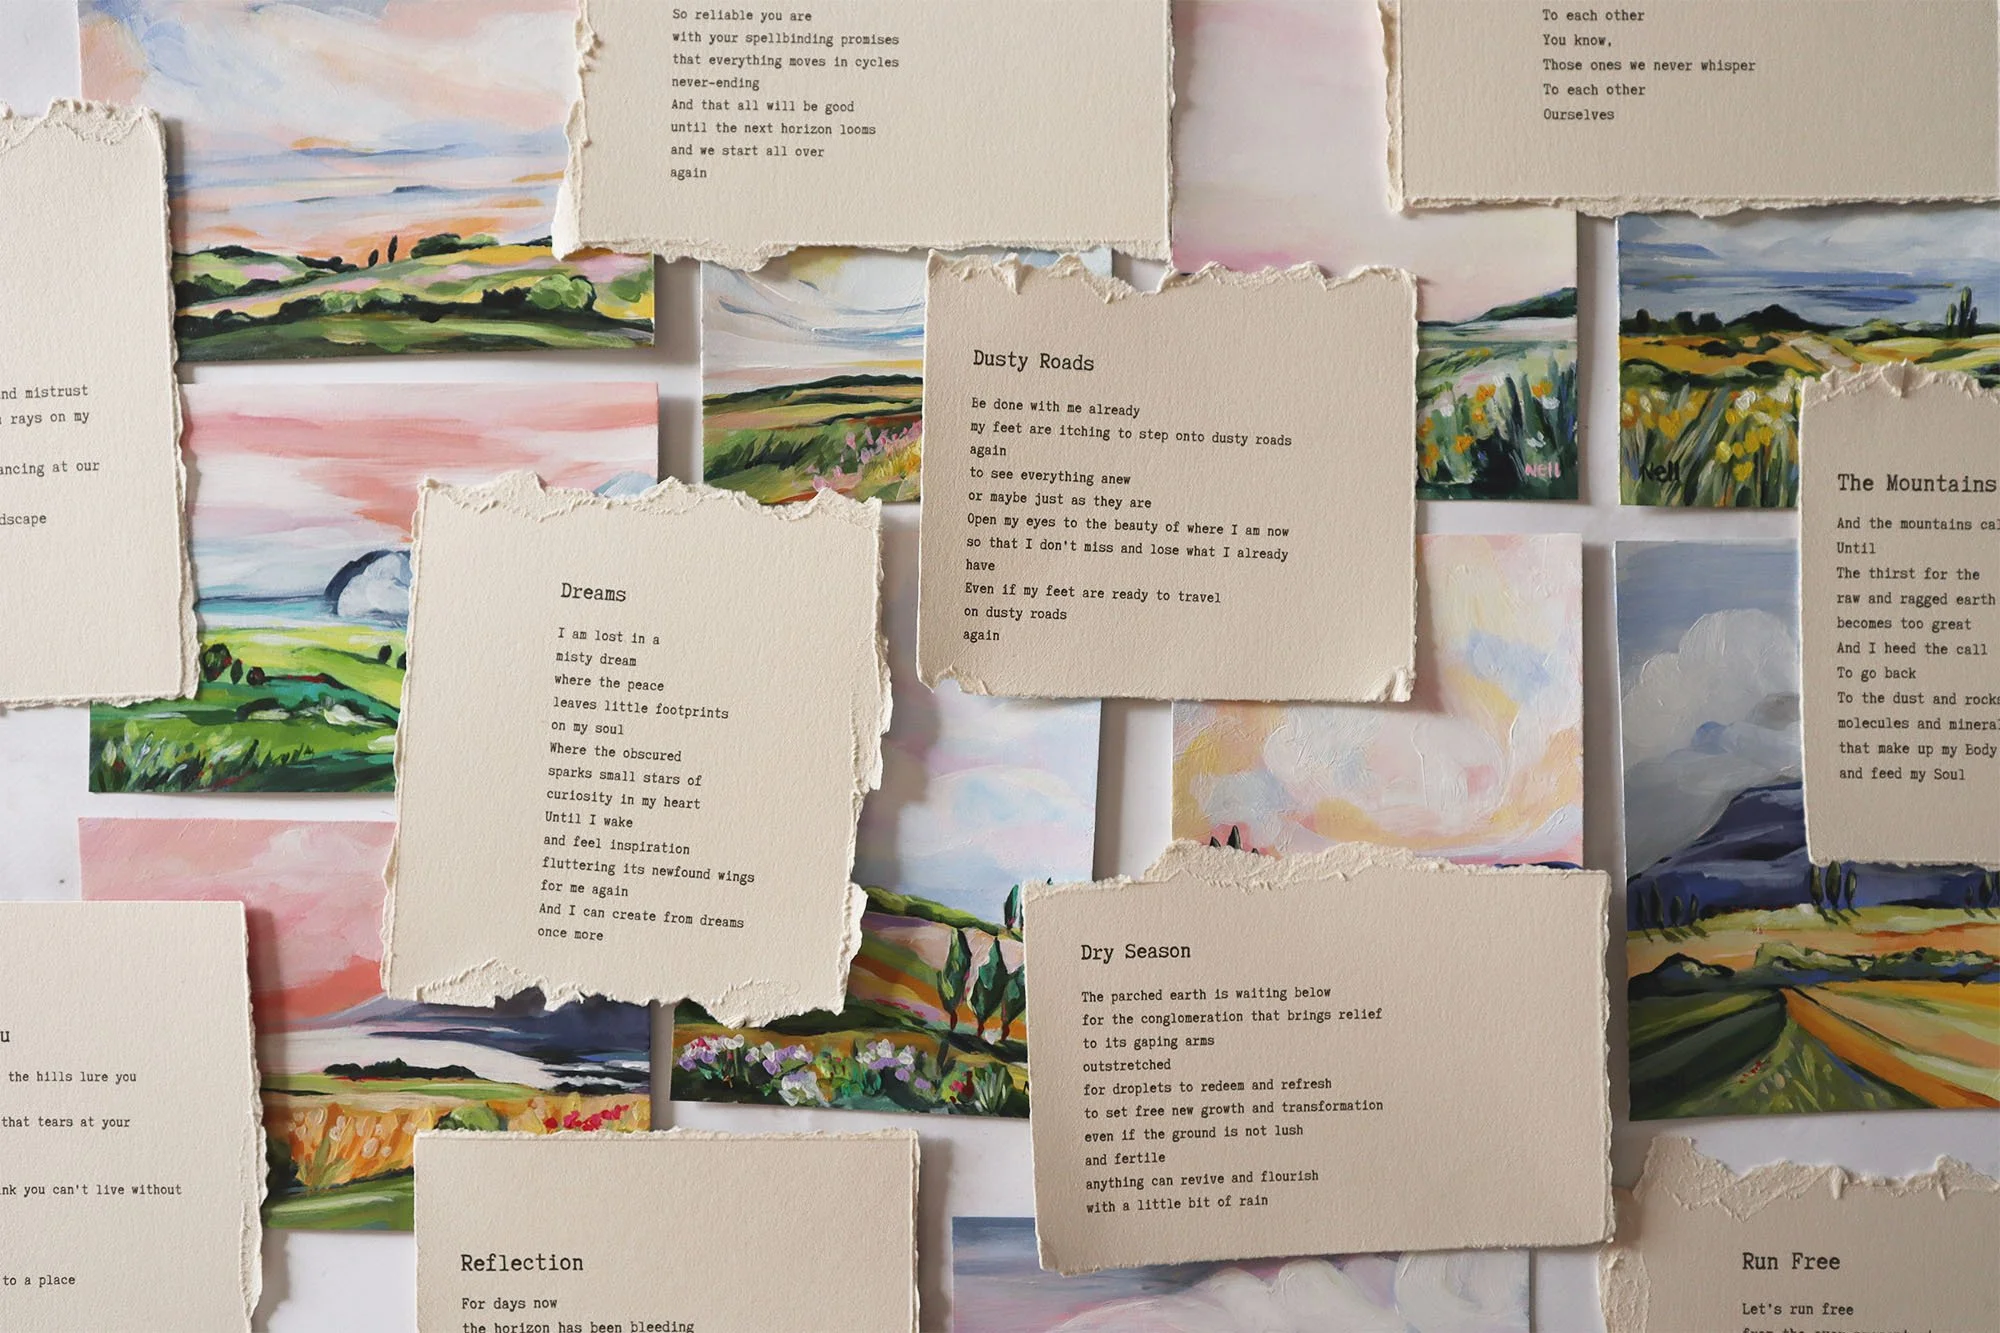 So reliable you are
with your spellbinding promises
that everything moves in cycles
never-ending
And that all will be good
until the next horizon looms
and we start all over
again
To each other
You know,
Those ones we never whisper
To each other
Ourselves
mistrust
rays on my
at our
Dusty Roads
Be done with me already
my feet are itching to step onto dusty roads
again
to see everything anew
or maybe just as they are
Open my eyes to the beauty of where I am now
so that I don't miss and lose what I already
have
Even if my feet are ready to travel
on dusty roads
again
Nell
Nell
The Mountains
And the mountains
Until
The thirst for the
raw and ragged earth
becomes too great
And I heed the call
To go back
To the dust and rocks
molecules and
that make up my Body
and feed my Soul
Dreams
I am lost in a
misty dream
where the peace
leaves little footprints
on my soul
Where the obscured
sparks small stars of
curiosity in my heart
Until I wake
and feel inspiration
fluttering its newfound wings
for me again
And I can create from dreams
once more
Dry Season
The parched earth is waiting below
for the conglomeration that brings relief
to its gaping arms
outstretched
for droplets to redeem and refresh
to set free new growth and transformation
even if the ground is not lush
and fertile
anything can revive and flourish
with a little bit of rain
the hills lure you
that tears at your
you can't live without
to a place
Reflection
For days now
the horizon has been bleeding
Run Free
Let's run free